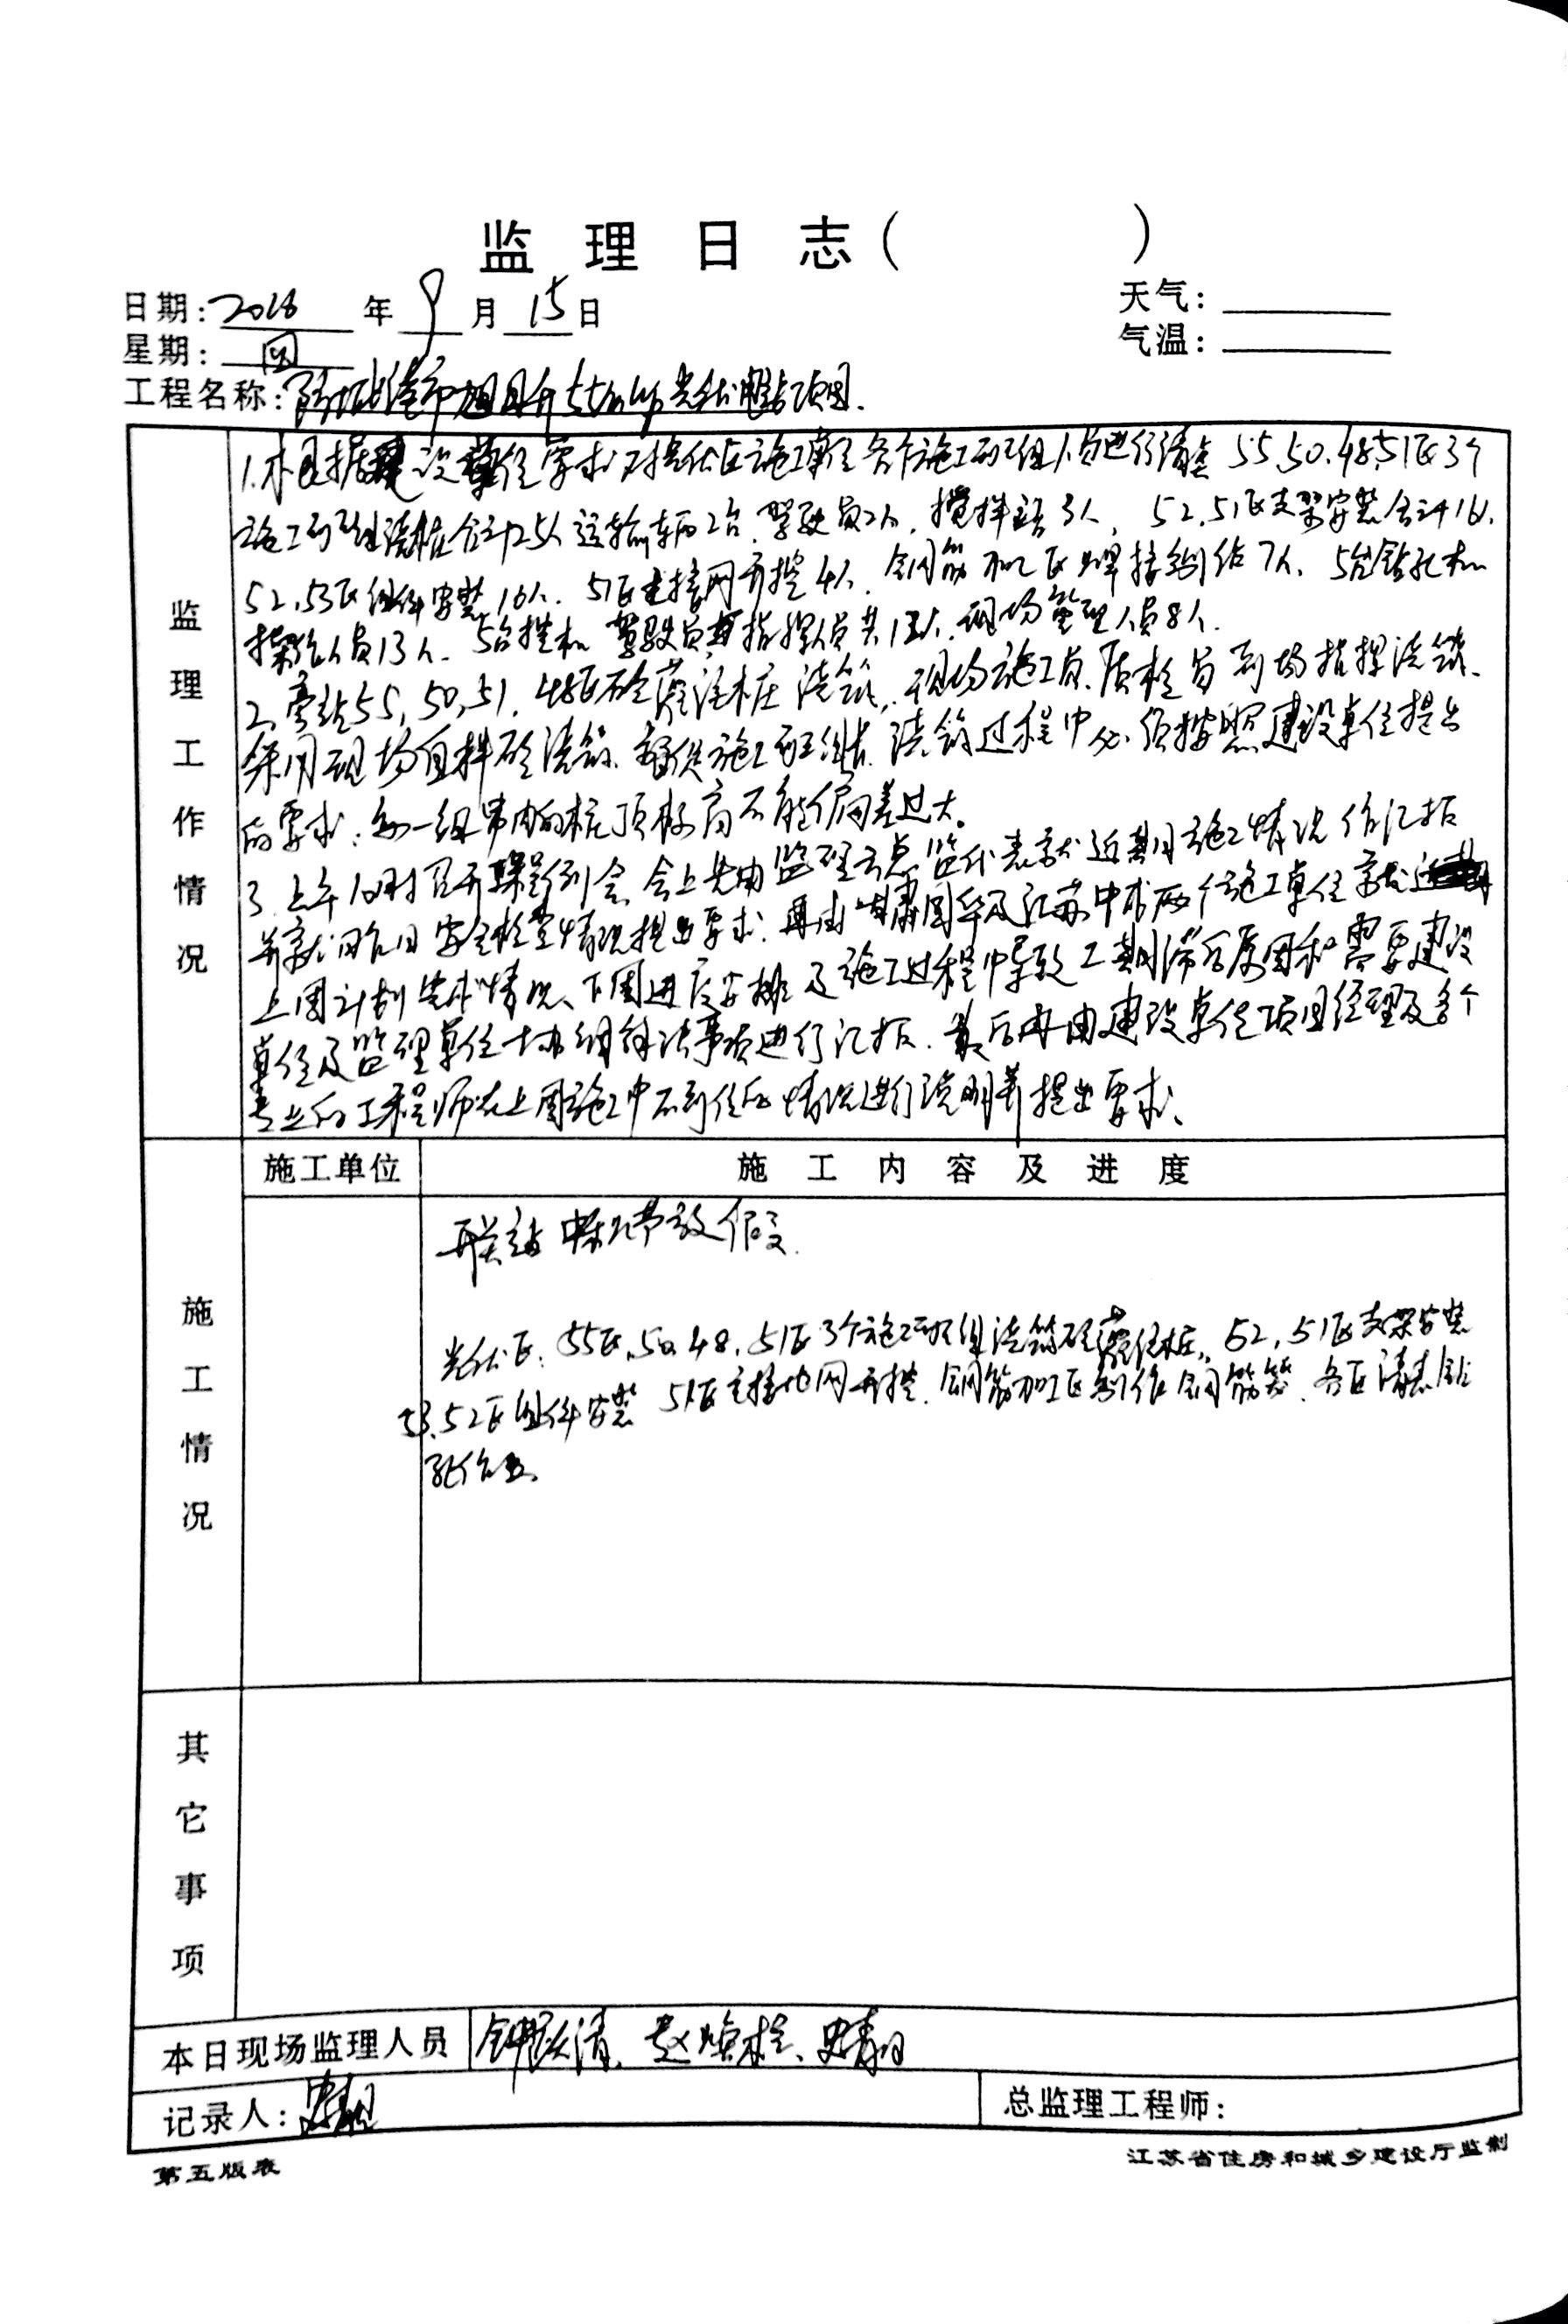 监理日志(            )
日期:2016年9月15日
天气:
星期:四
气温:
工程名称:防城港市旭日升55mwp光伏电站项目.
监理工作情况
1.根据建设单位要求对光伏区施工单位各作施工班组人员进行清点 55.50.48.51区3个
施工班组浇桩合计25人 运输车辆2台.驾驶员2人.搅拌站3人. 52.51区支架安装合计16.
52.53区组件安装16人. 51区主接网开挖4人. 钢筋加工区焊接绑扎7人. 5台钻孔机
操作人员13人. 5台挖机驾驶员和指挥员共13人.现场管理人员8人.
2.旁站55,50,51.48区砼灌注桩浇筑.现场施工员.质检员到场指挥浇筑.
采用现场自拌砼浇筑.督促施工班组长.浇筑过程中必须按照建设单位提出
的要求:每一组串内的桩顶标高不能偏差过大.
3.上午10时召开工程例会.会上先由监理方总监代表就近期施工情况作汇报
并就昨日安全检查情况提出要求.再由甘肃国华及江苏中成两个施工单位就
上周计划完成情况、下周进度安排及施工过程中导致工期滞后原因和需要建设
单位及监理单位协调解决事项进行汇报.最后再由建设单位项目经理及各个
专业的工程师在上周施工中不到位的情况进行说明并提出要求.
施工情况
施工单位
施工内容及进度
开关站 中秋节放假.
光伏区: 55区.50.48.51区3个施工班组浇筑砼灌注桩. 52,51区支架安装
53.52区组件安装 51区主接地网开挖.钢筋加工区制作钢筋笼.各区清表钻
孔作业.
其它事项
本日现场监理人员
记录人:
总监理工程师:
第五版表
江苏省住房和城乡建设厅监制